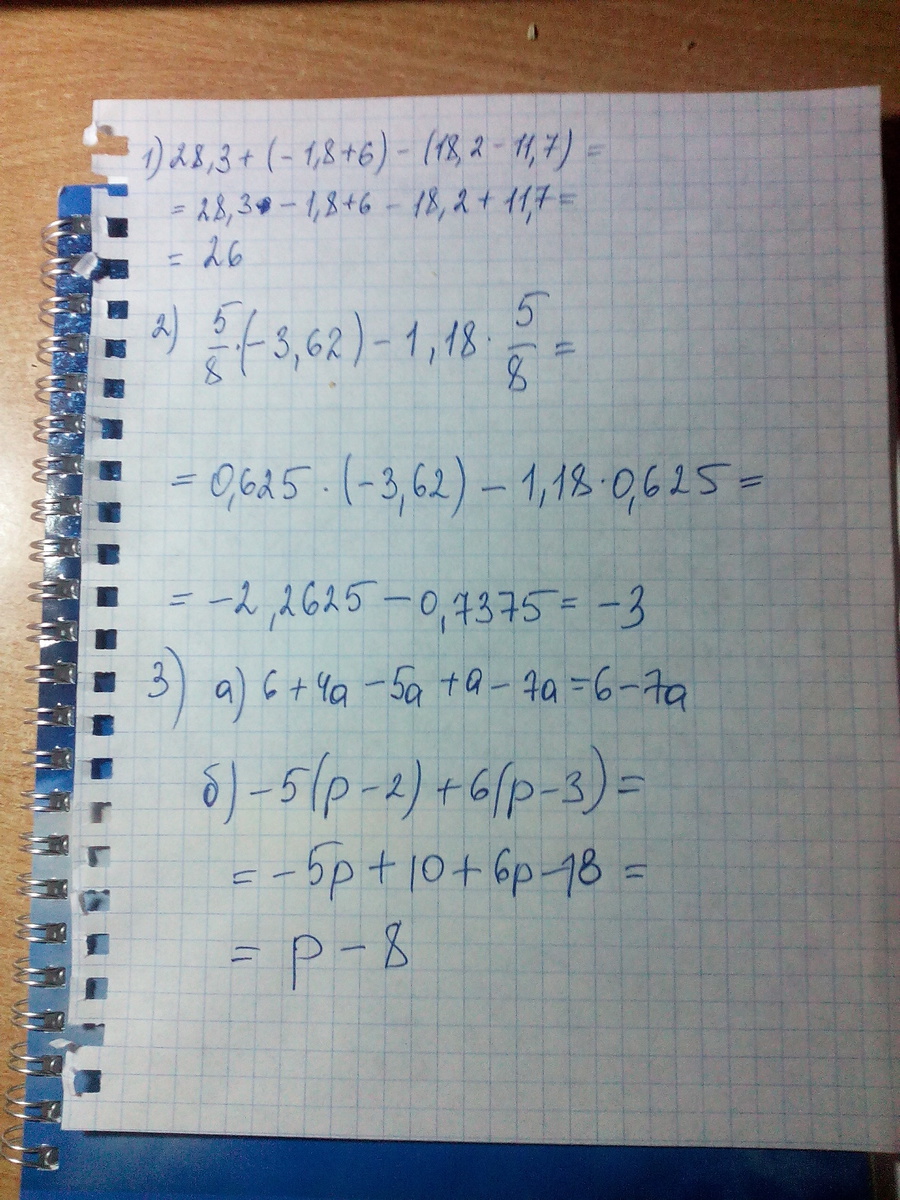 1) 28,3 + (-1,8+6) - (18,2 - 11,7) =
= 28,3 - 1,8+6 - 18,2 + 11,7 =
= 26
2) 5/8 · (-3,62) - 1,18 · 5/8 =
= 0,625 · (-3,62) - 1,18 · 0,625 =
= -2,2625 - 0,7375 = -3
3) а) 6 + 4a - 5a + a - 7a = 6 - 7a
б) -5(p - 2) + 6(p - 3) =
= -5p + 10 + 6p - 18 =
= p - 8